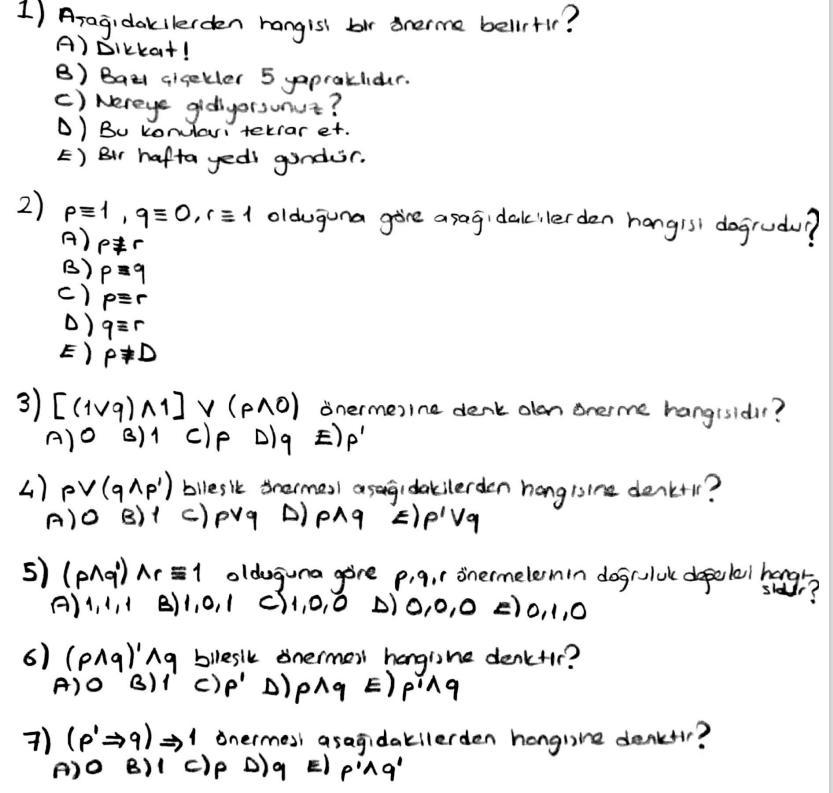 1) Aşağıdakilerden hangisi bir önerme belirtir?
A) Dikkat!
B) Bazı çiçekler 5 yapraklıdır.
C) Nereye gidiyorsunuz?
D) Bu konuları tekrar et.
E) Bir hafta yedi gündür.
2) p≡1, q≡0, r≡1 olduğuna göre aşağıdakilerden hangisi doğrudur?
A) p≢r
B) p≡q
C) p≡r
D) q≡r
E) p≢D
3) [(1∨q)∧1] ∨ (p∧0) önermesine denk olan önerme hangisidir?
A) 0 B) 1 C) p D) q E) p'
4) p∨(q∧p') bileşik önermesi aşağıdakilerden hangisine denktir?
A) 0 B) 1 C) p∨q D) p∧q E) p'∨q
5) (p∧q')∧r≡1 olduğuna göre p,q,r önermelerinin doğruluk değerleri hangi-
sidir?
A) 1,1,1 B) 1,0,1 C) 1,0,0 D) 0,0,0 E) 0,1,0
6) (p∧q)'∧q bileşik önermesi hangisine denktir?
A) 0 B) 1 C) p' D) p∧q E) p'∧q
7) (p'⇒q)⇒1 önermesi aşağıdakilerden hangisine denktir?
A) 0 B) 1 C) p D) q E) p'∧q'